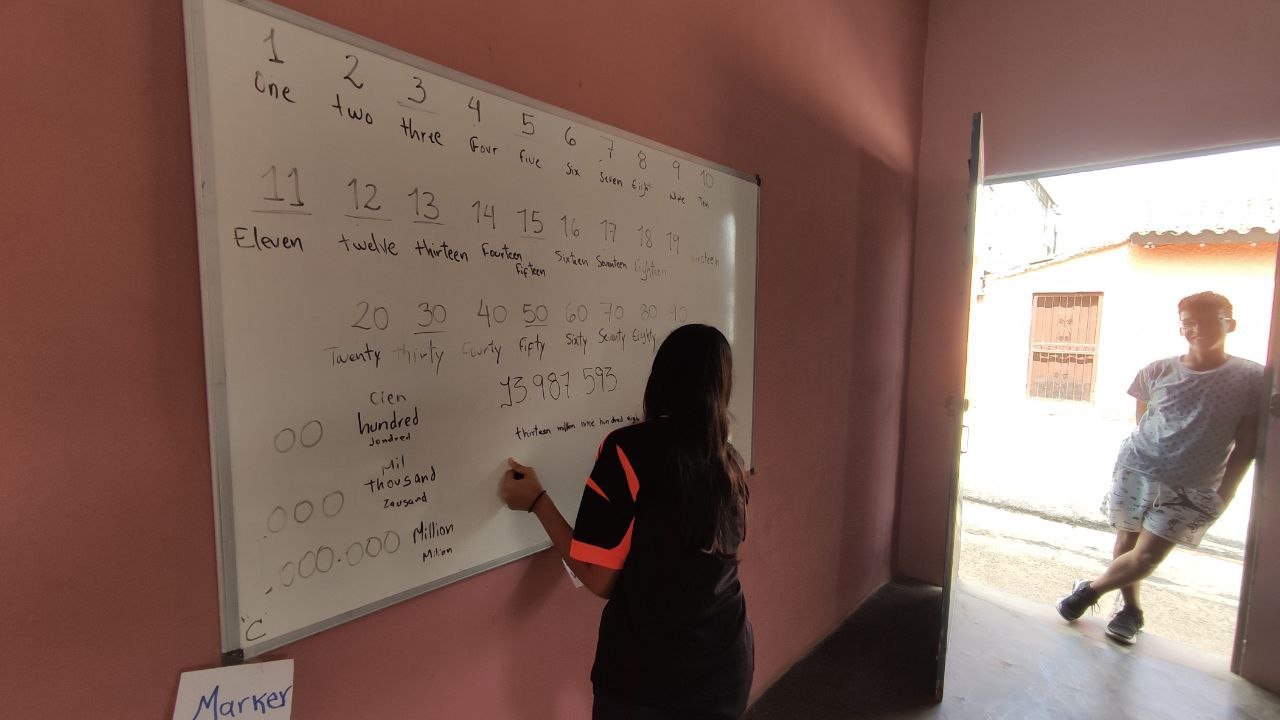 1 2 3 4 5 6 7 8 9 10
One two three four five Six Seven Eight Nine Ten
11 12 13 14 15 16 17 18 19
Eleven twelve thirteen Fourteen Fifteen Sixteen Seventeen Eighteen Nineteen
20 30 40 50 60 70 80 90
Twenty Thirty Fourty Fifty Sixty Seventy Eighty
13.987 593
thirteen million nine hundred eigh
Cien
00 hundred
Jondred
Mil
.000 thousand
Zausand
.000.000 Million
Milion
"C
Marker